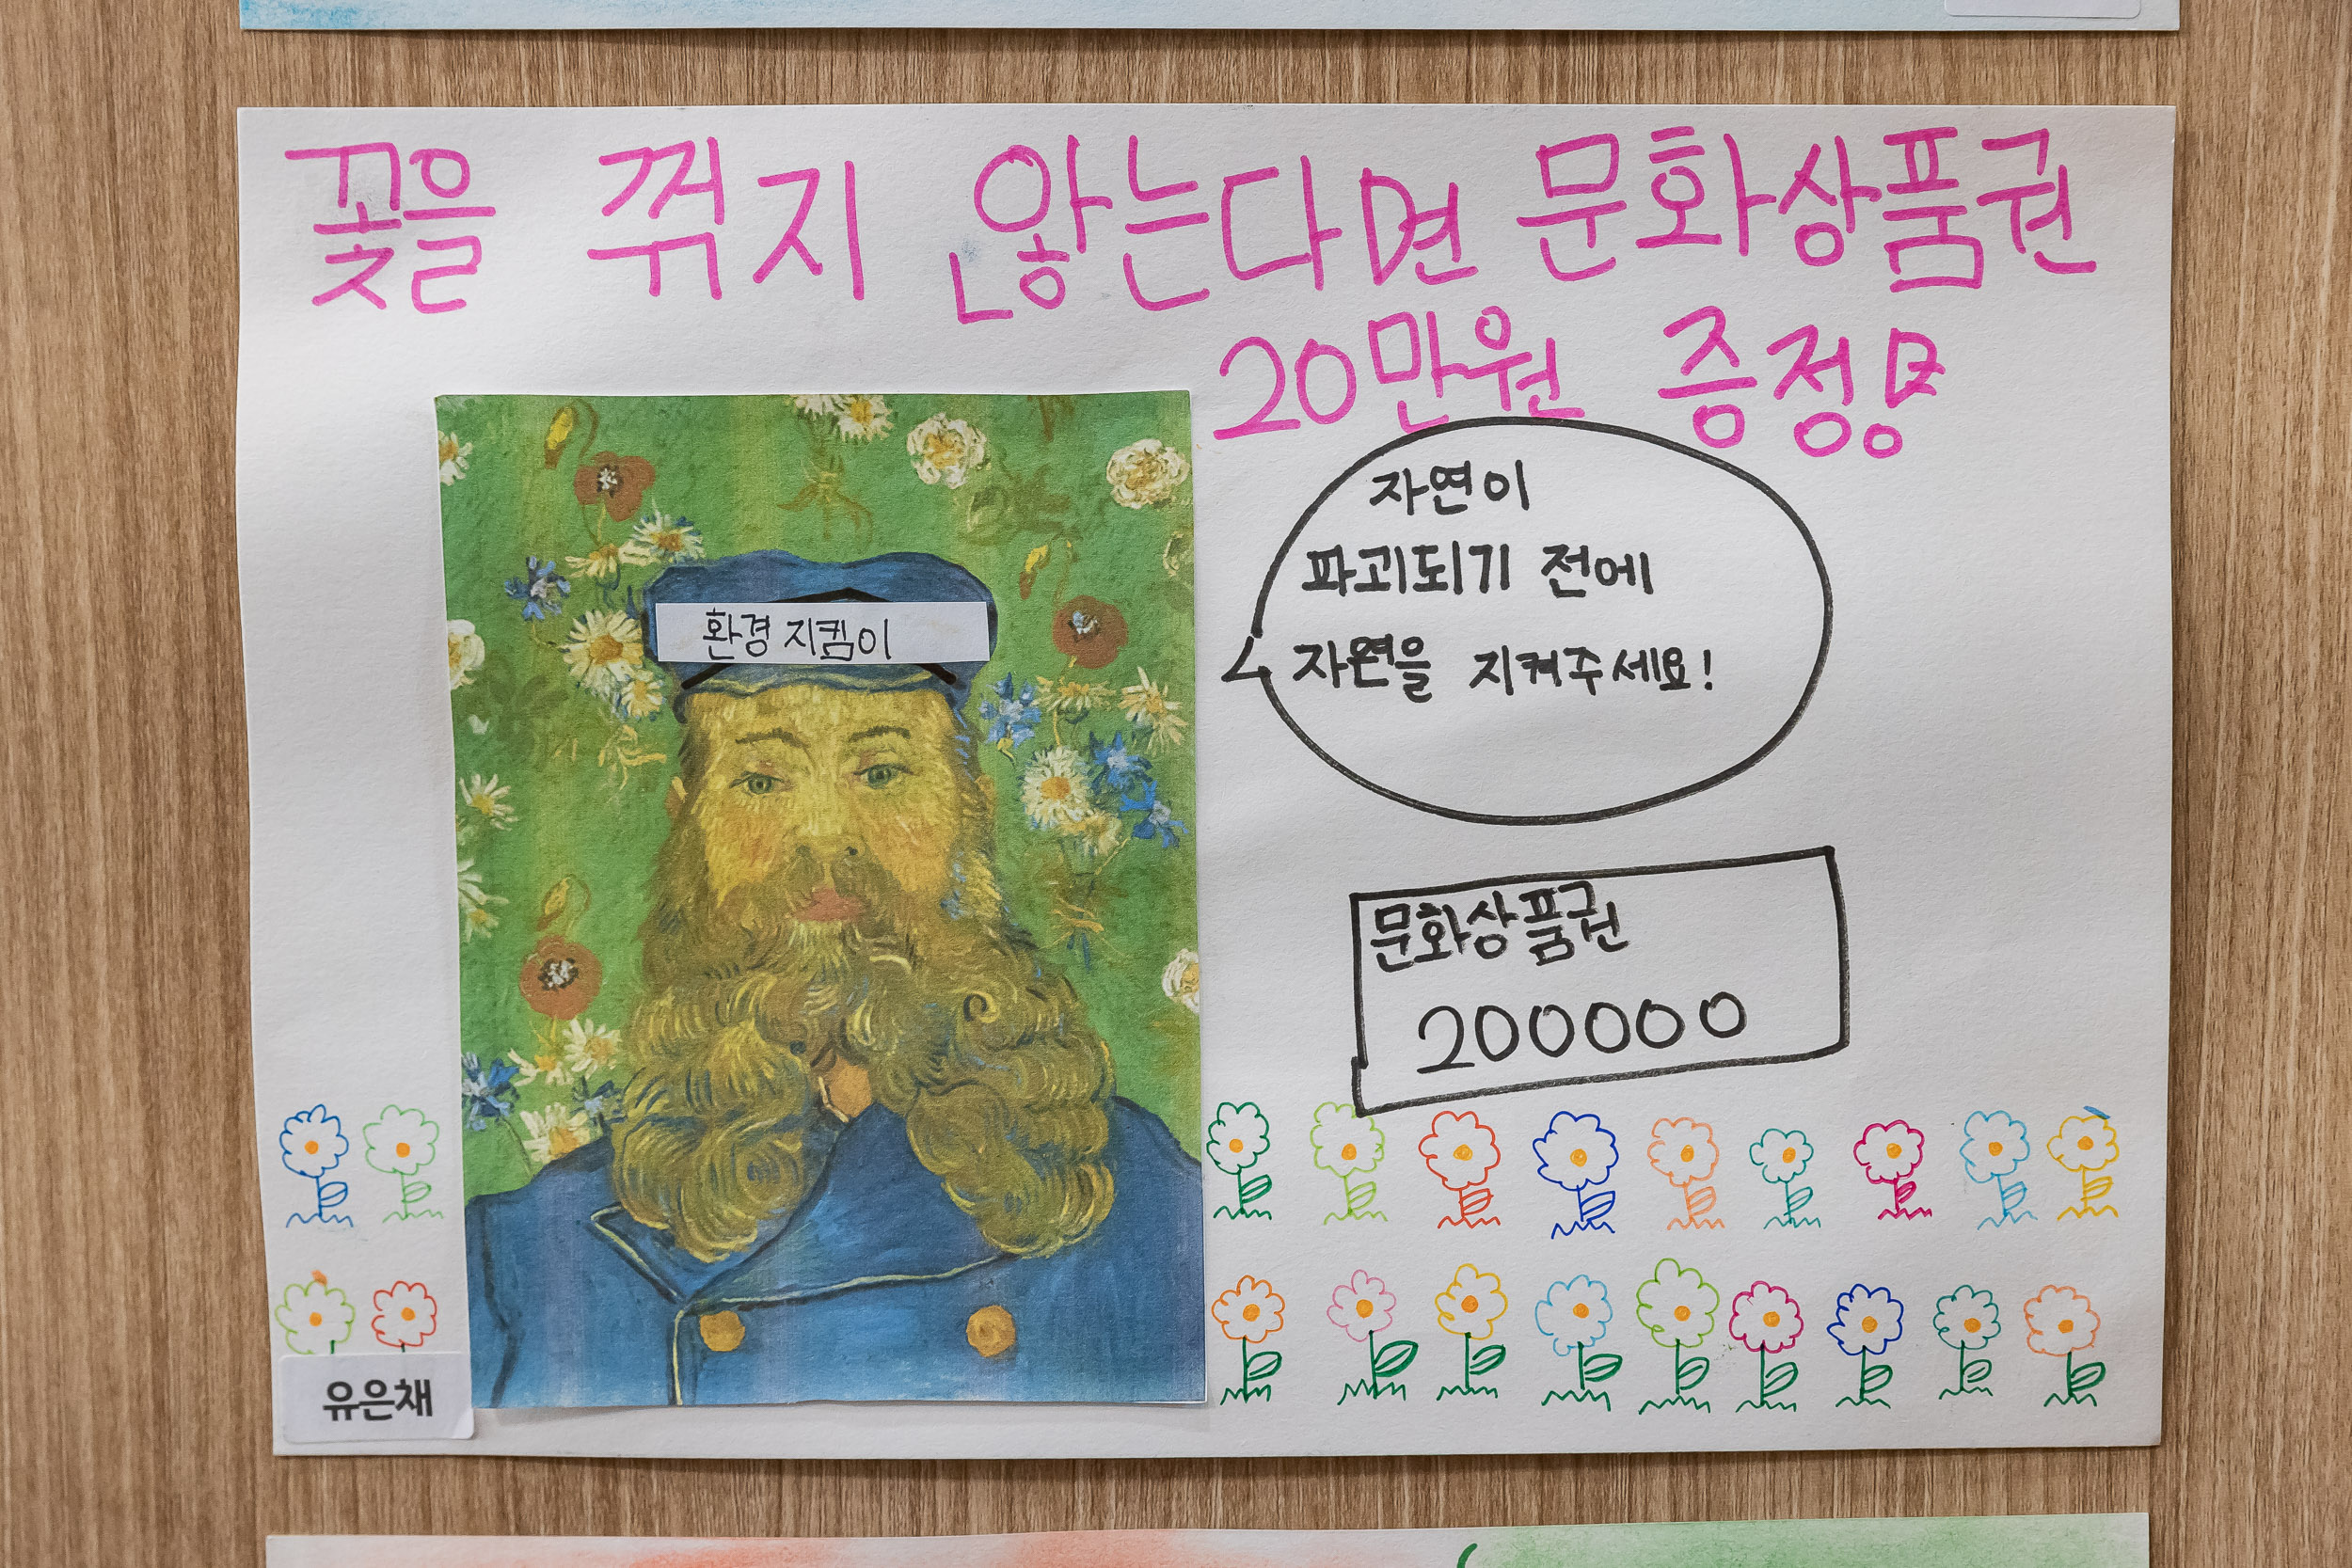 꽃을 꺾지 않는다면 문화상품권
20만원 증정!
자연이
파괴되기 전에
자연을 지켜주세요!
환경 지킴이
문화상품권
200000
유은채